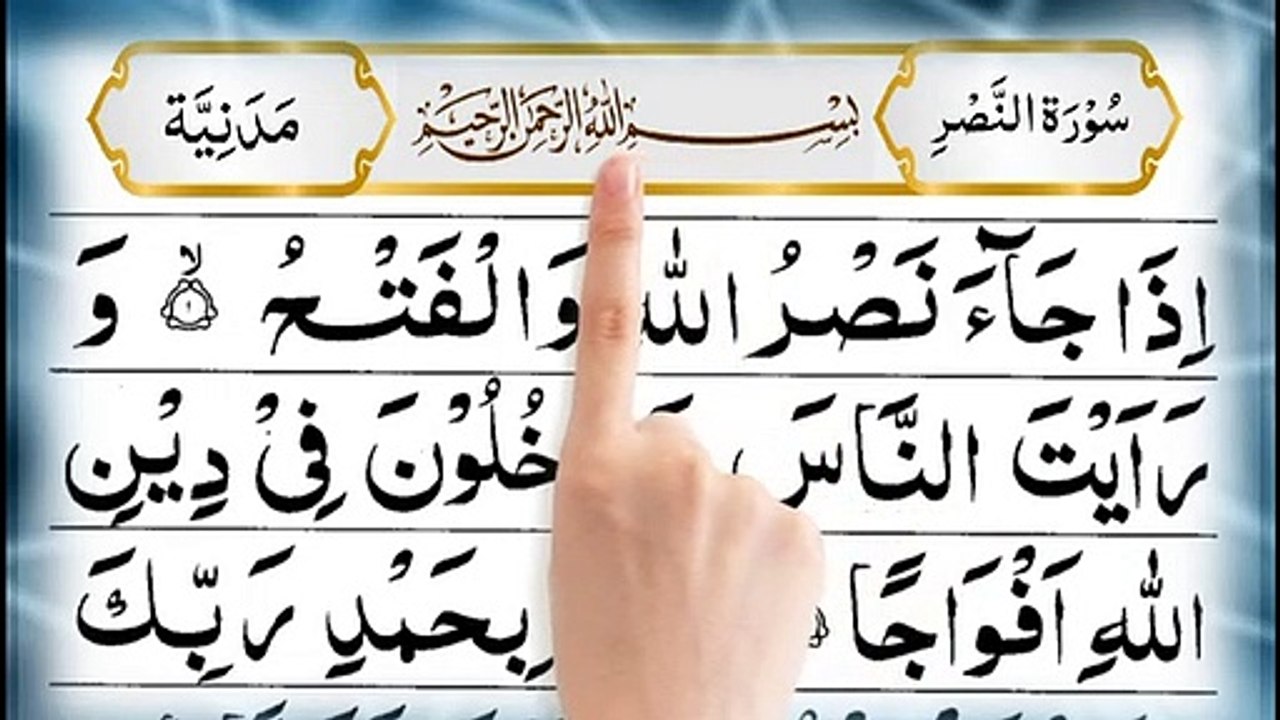 سُوْرَةُ النَّصْرِ بِسْمِ اللهِ الرَّحْمٰنِ الرَّحِيْمِ مَدَنِيَّة
اِذَا جَآءَ نَصْرُ اللهِ وَالْفَتْحُ ۙ ۱ وَ
رَاَيْتَ النَّاسَ فِىْ دِيْنِ
اللهِ اَفْوَاجًا بِحَمْدِ رَبِّكَ